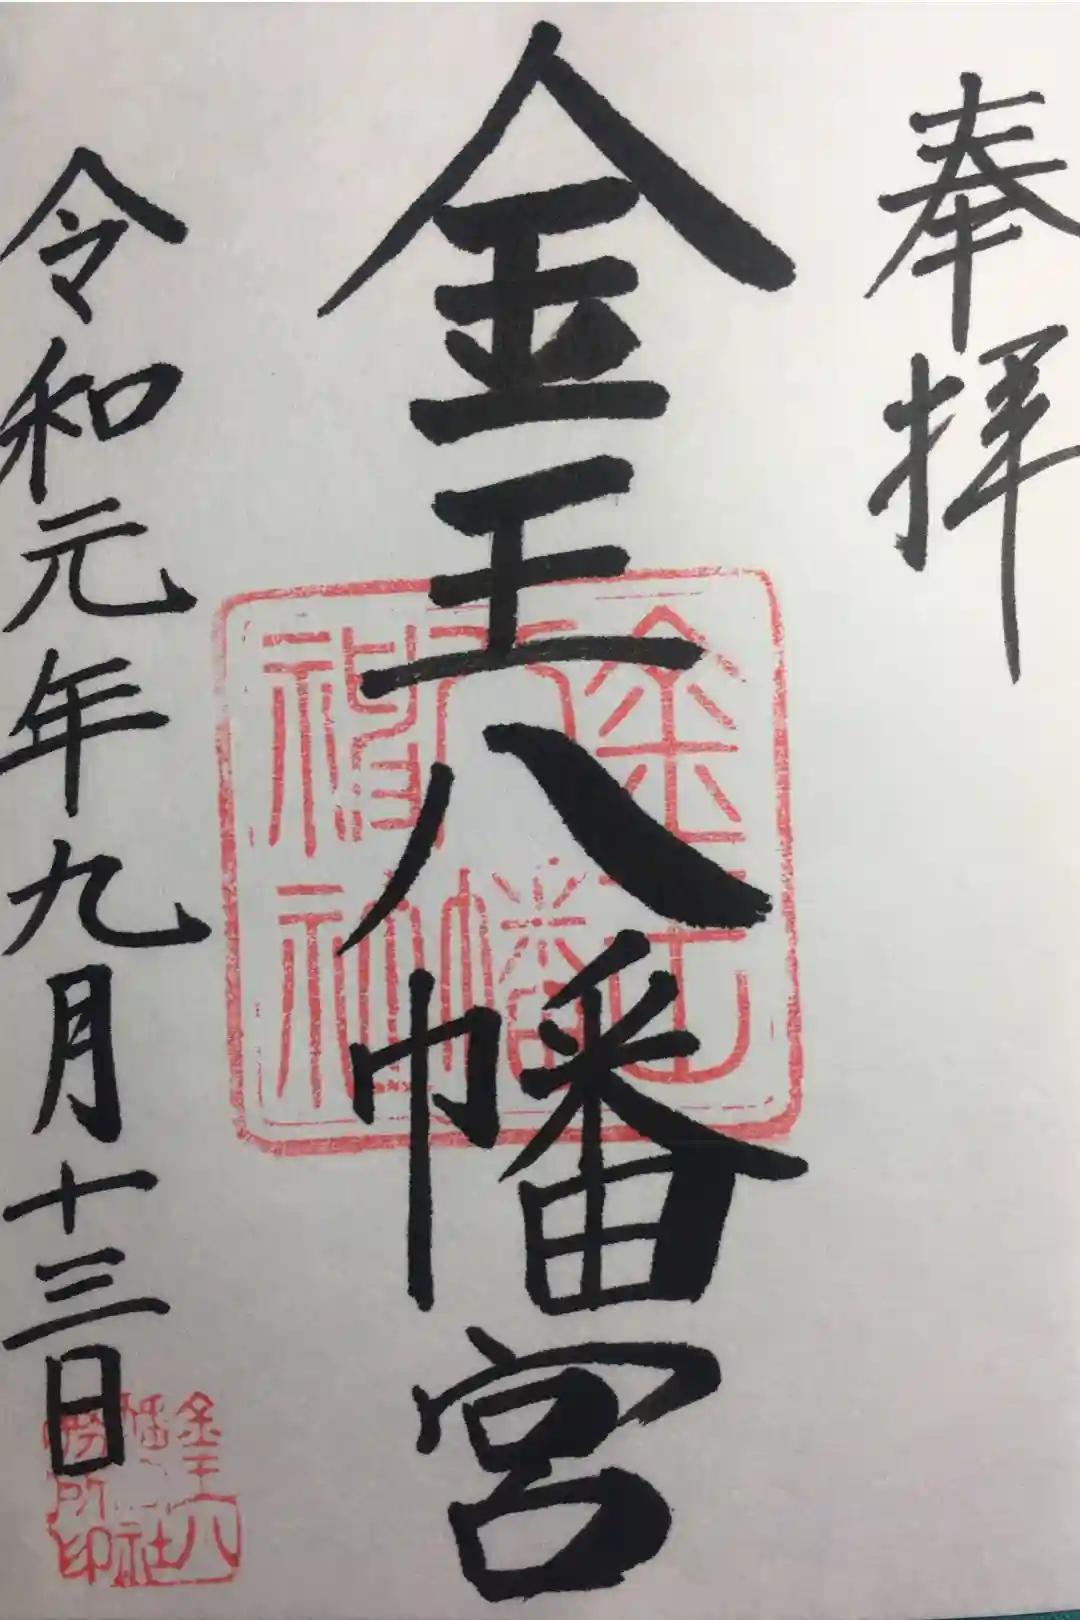 奉拝
金王八幡宮
令和元年九月十三日
金王八幡神社
金王八幡社務所印